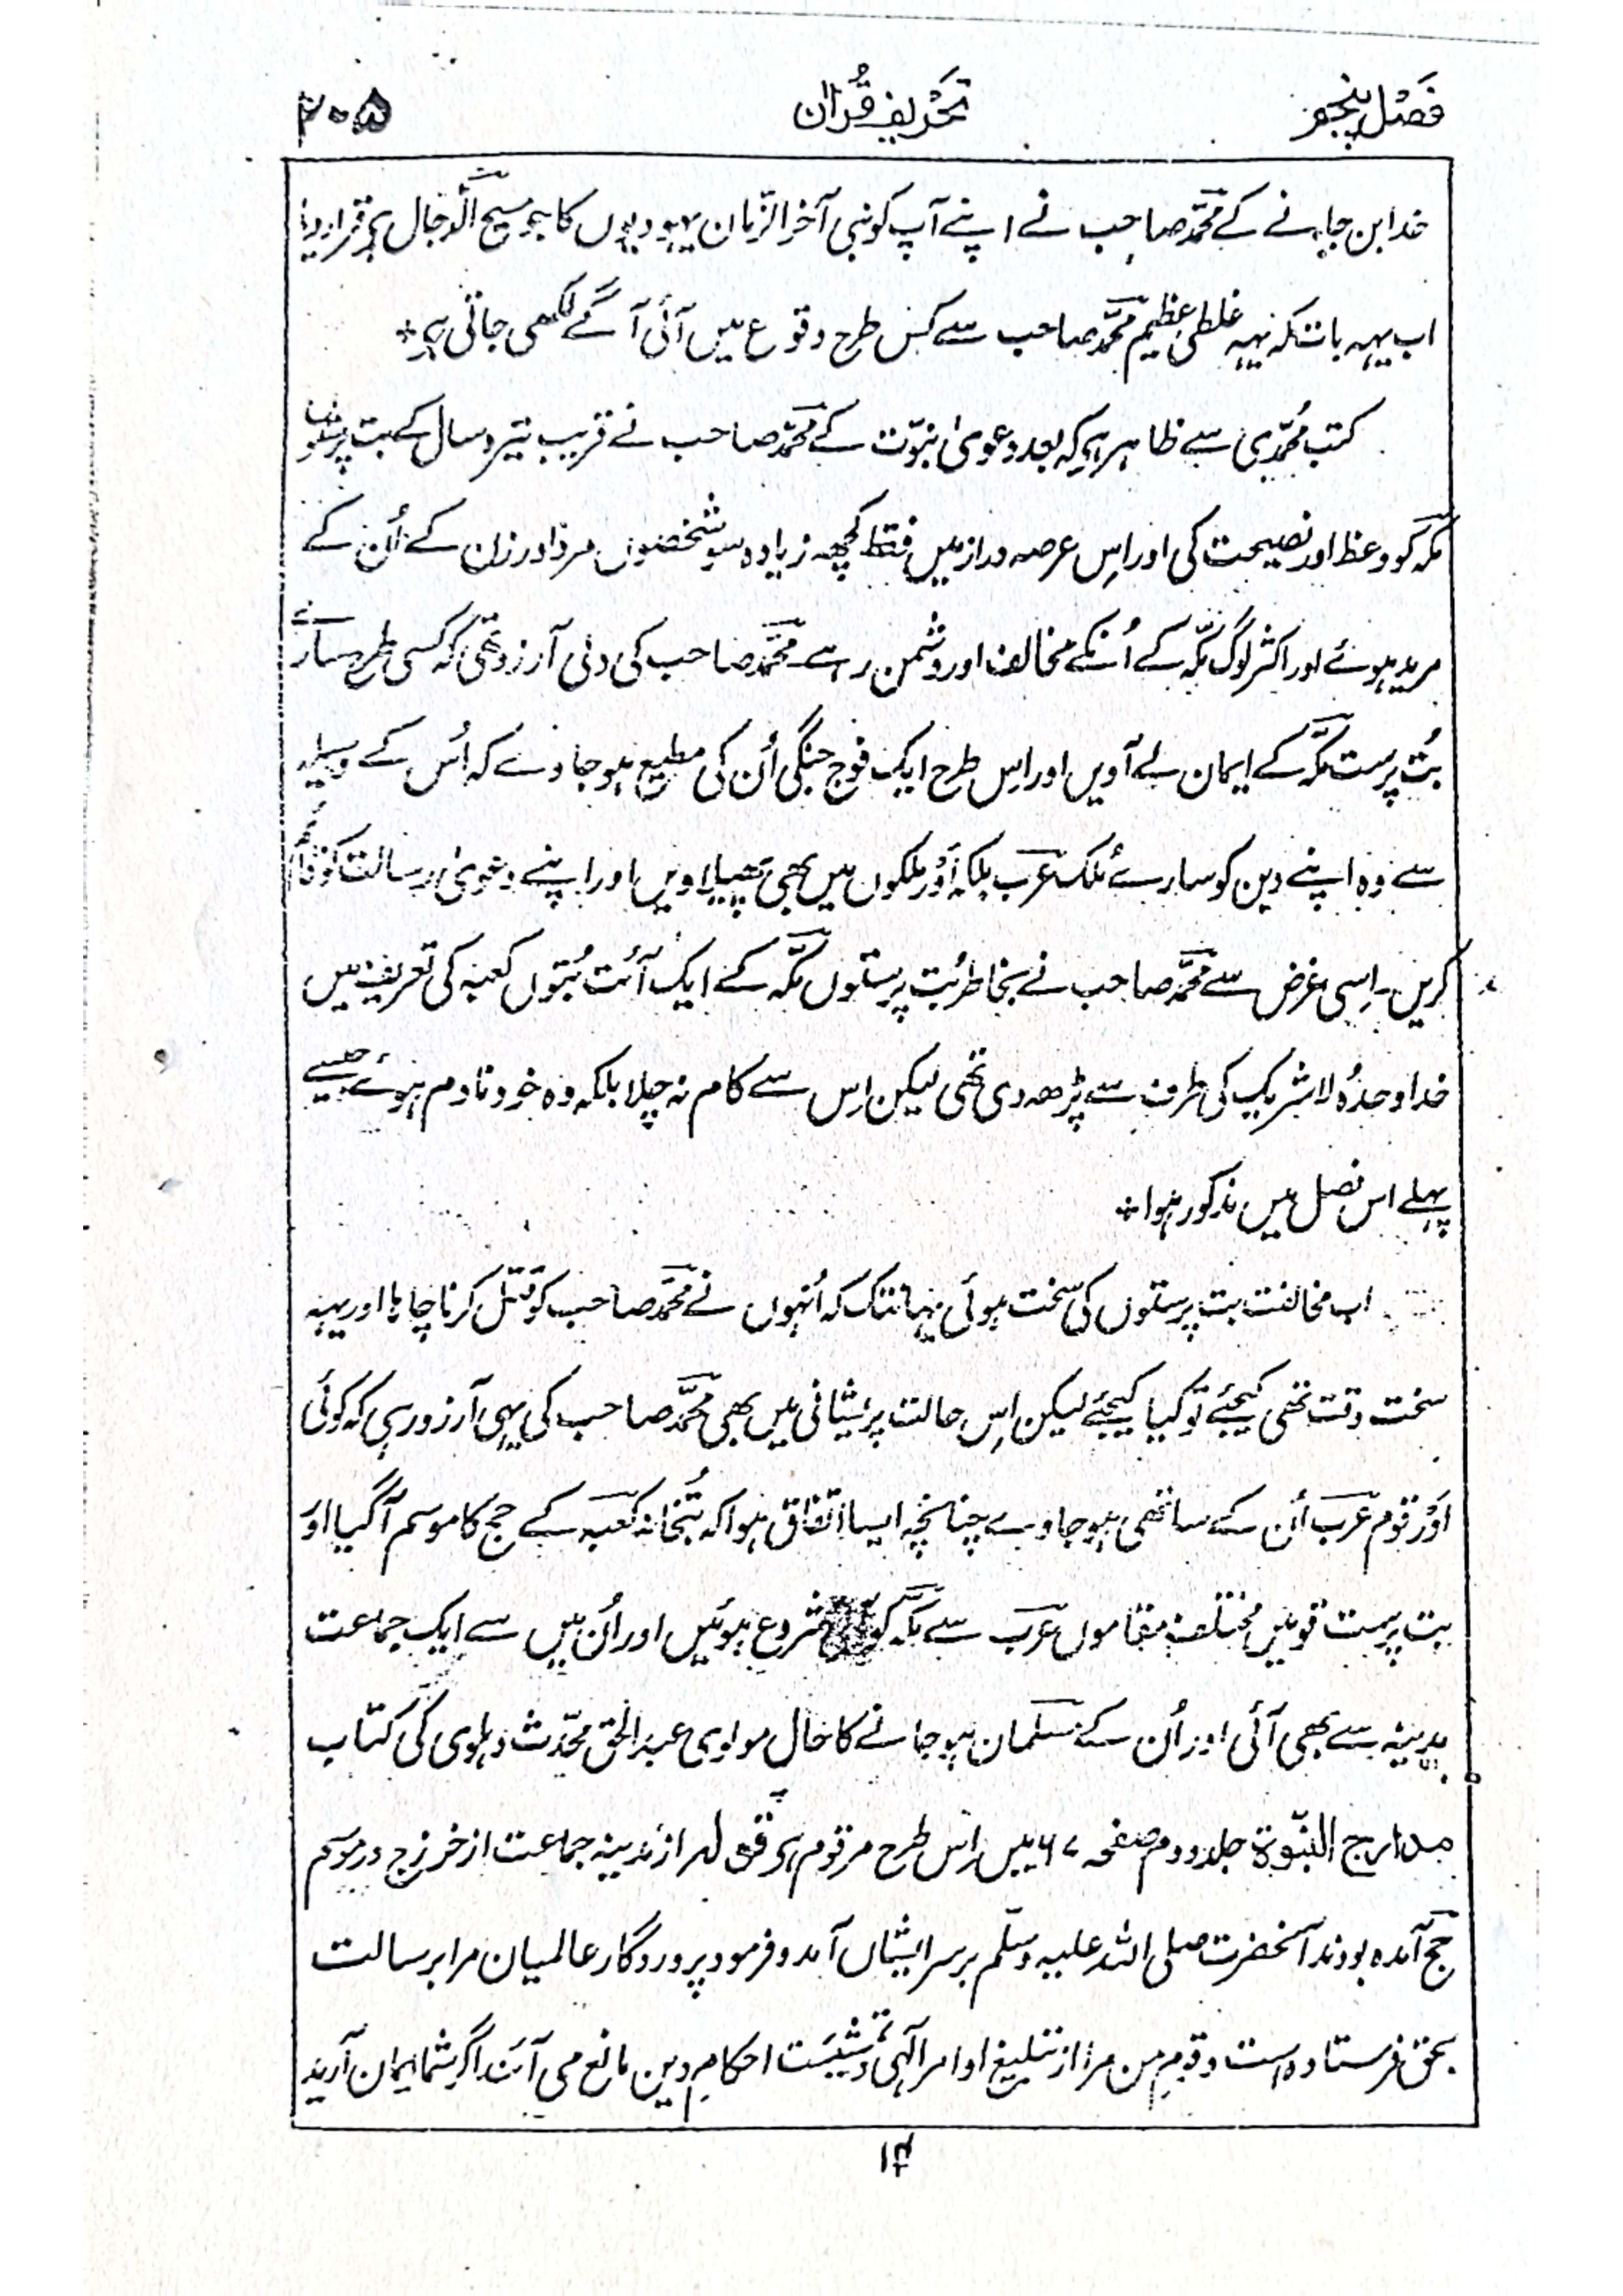 فصل پنجم
تحریف قرآن
۲۰۵
خدا بن جانے کے محمد صاحب نے اپنے آپ کو نبی آخر الزمان یہودیوں کا جو مسیح الدجال ہی قرار دیا
اب یہہ بات کہ یہہ غلطی عظیم محمد صاحب سے کس طرح وقوع میں آئی آگے لکھی جاتی ہی*
کتب محمدی سے ظاہر ہی کہ بعد دعوی نبوّت کے محمد صاحب نے قریب تیرہ سال کے بت پرستان
مکہ کو وعظ اور نصیحت کی اور اِس عرصہ دراز میں فقط کچھہ زیادہ سو شخصوں مرد اور زن کے اُن کے
مرید ہوئے اور اکثر لوگ مکّہ کے اُنکے مخالف اور دشمن رہے۔ محمّد صاحب کی دلی آرزو تھی کہ کسی طرح سارے
بُت پرست مکّہ کے ایمان لے آویں اور اِس طرح ایک فوج جنگی اُن کی مطیع ہو جاوے کہ اُس کے وسیلہ
سے وہ اپنے دین کو سارے ملک عرب بلکہ اَوْر ملکوں میں بھی پھیلاویں اور اپنے دعویٰ رسالت کو قائم
کریں۔ اِسی غرض سے محمّد صاحب نے بخاطر بُت پرستوں مکّہ کے ایک آئت بُتوں کعبہ کی تعریف میں
خدا وحدہٗ لا شریک کی طرف سے پڑھہ دی تھی لیکن اِس سے کام نہ چلا بلکہ وہ خود نادم ہوئے جیسے
پہلے اس فصل میں مذکور ہوا*
اب مخالفت بت پرستوں کی سخت ہوئی یہانتک کہ اُنہوں نے محمّد صاحب کو قتل کرنا چاہا اور یہہ
سخت دقت تھی کیجئے تو کیا کیجئے لیکن اِس حالت پریشانی میں بھی محمّد صاحب کی یہی آرزو رہی کہ کوئی
اَوْر قوم عرب اُن کے ساتھی ہو جاوے چنانچہ ایسا اتفاق ہوا کہ بُتخانہ کعبہ کے حج کا موسم آگیا اور
بت پرست قومیں مختلف مقاموں عرب سے مکّہ کو شروع ہوئیں اور اُن میں سے ایک جماعت
مدینہ سے بھی آئی اور اُن کے مسلمان ہو جانے کا حال مولوی عبد الحق محدّث دہلوی کی کتاب
مدارج النبّوۃ جلد دوم صفحہ ۶۷ میں اِس طرح مرقوم ہی قولہ از مدینہ جماعت از خزرج در موسم
حج آمدہ بودند آنحضرت صلی اللہ علیہ وسلّم بر سر ایشاں آمد و فرمود پروردگار عالمیان مرا برسالت
بحق فرستادہ است و قومِ من مرا از تبلیغ اوامر آلہی و تمشیت احکامِ دین مانع می آئند اگر شما ایمان آرید
۱۴